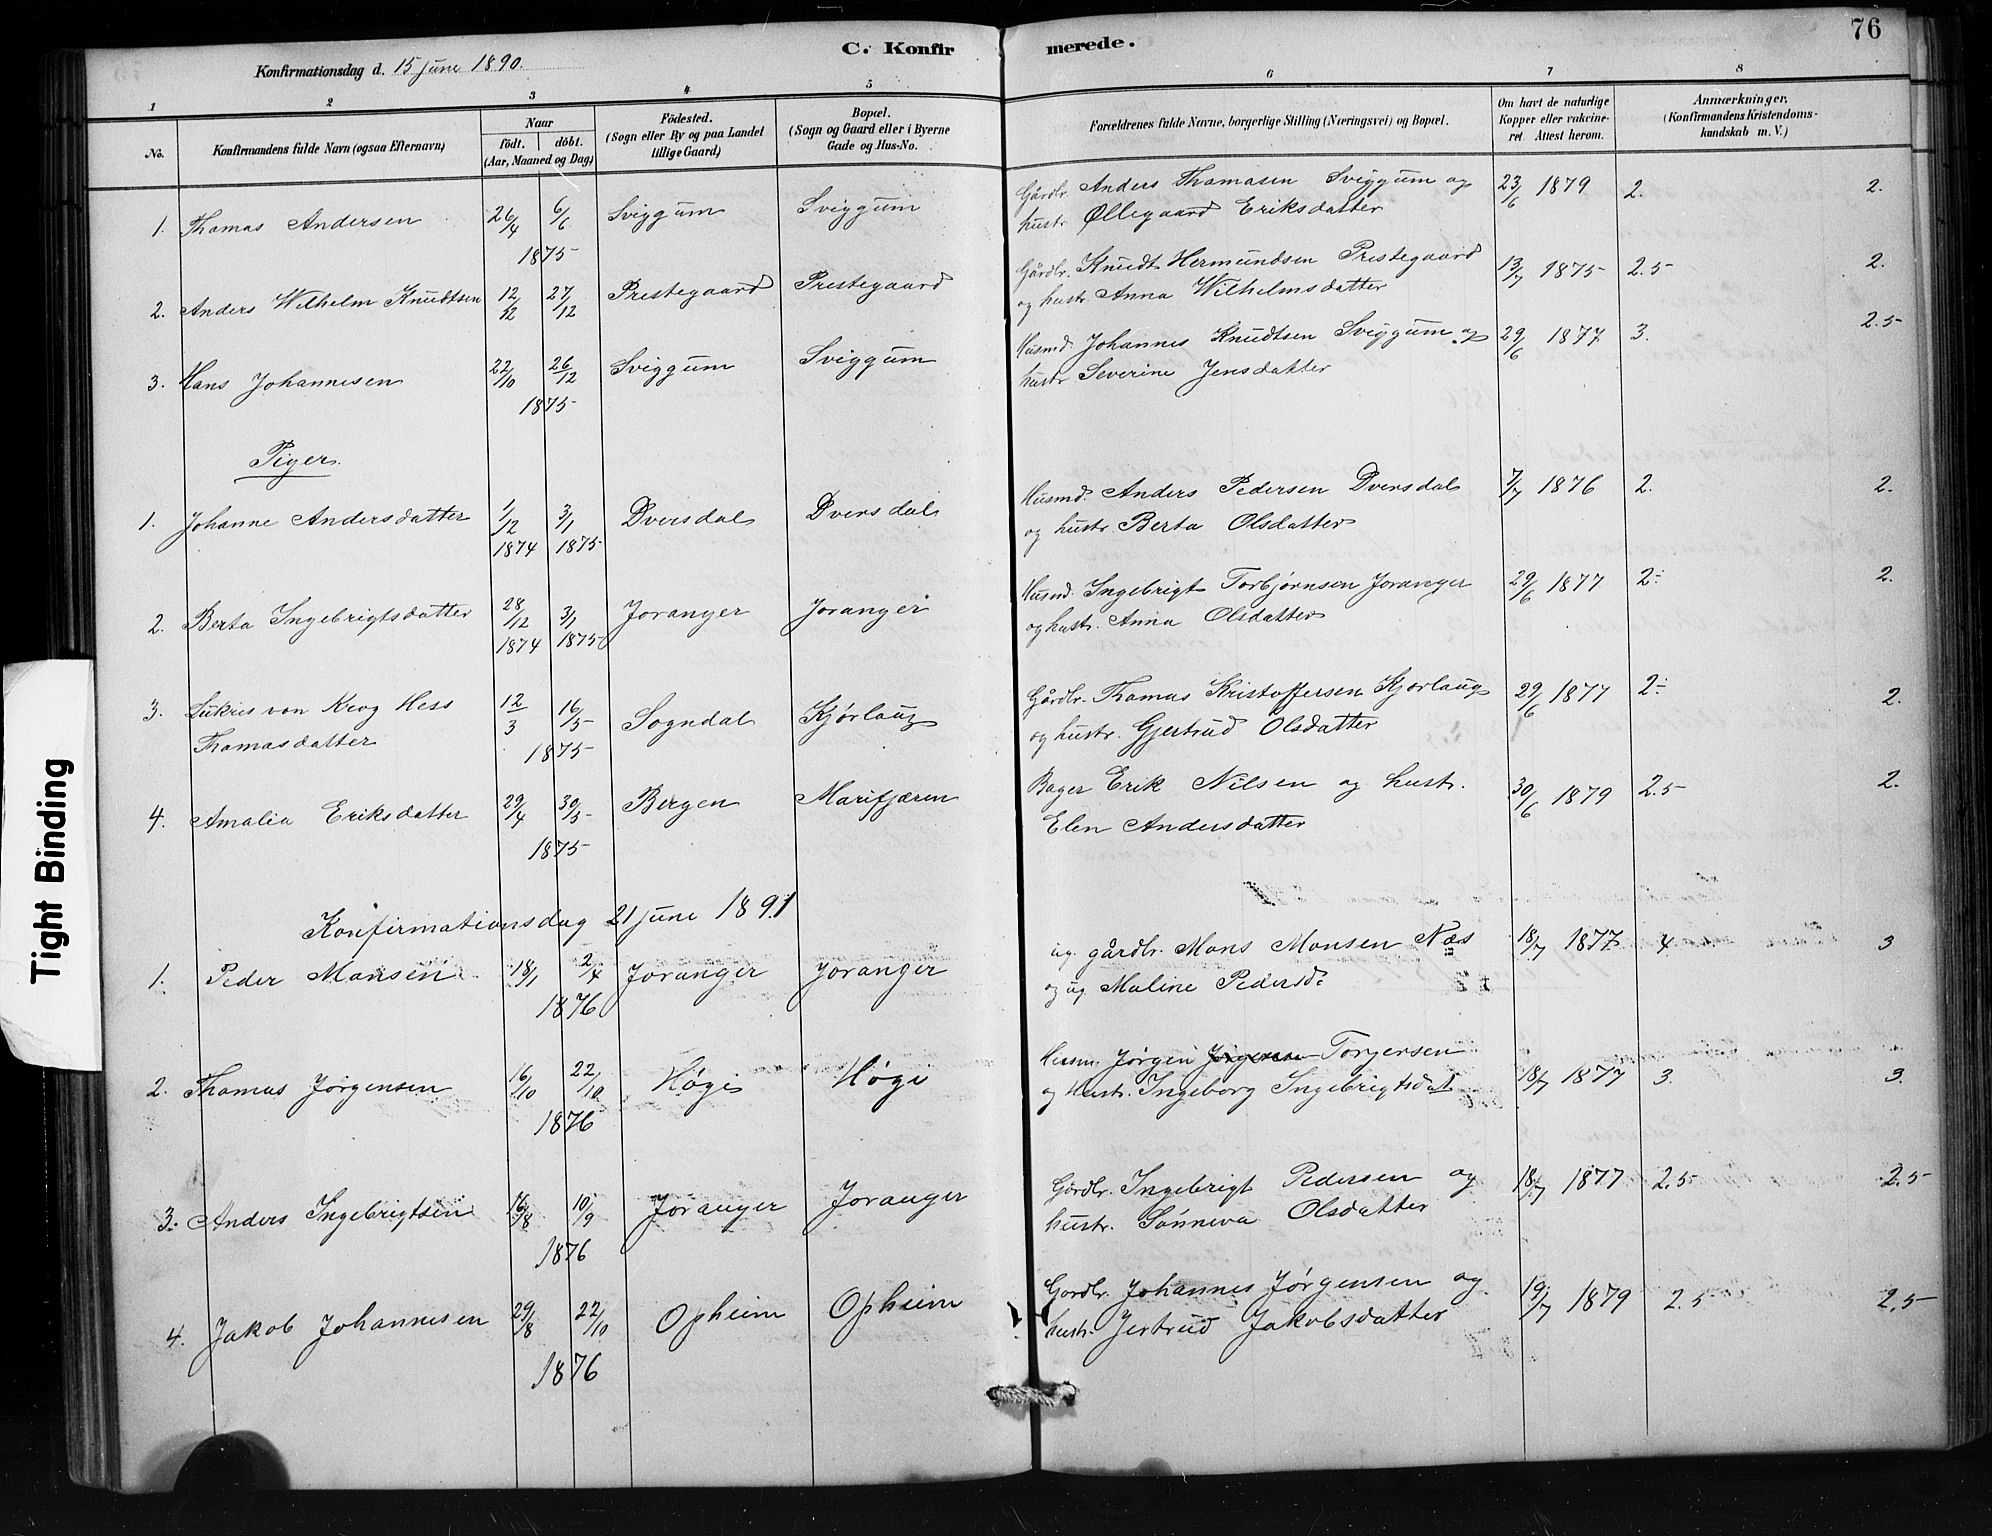 76
C. Konfirmerede.
Konfirmationsdag d. 15 June 1890.
1 2 3 4 5 6 7 8
No.
Konfirmandens fulde Navn (ogsaa Efternavn)
Naar
født. døbt.
(Aar, Maaned og Dag)
Fødested.
(Sogn eller By og paa Landet
tillige Gaard)
Bopæl.
(Sogn og Gaard eller i Byerne
Gade og Hus-No.
Forældrenes fulde Navne, borgerlige Stilling (Næringsvei) og Bopæl.
Om havt de naturlige
Kopper eller vakcine-
ret. Attest herom.
Anmærkninger.
(Konfirmandens Kristendoms-
kundskab m. V.)
1. Thomas Andersen 26/4 6/6 1875 Sviggum Sviggum Gårdbr. Anders Thomasen Sviggum og
hustr. Øllegaard Eriksdatter 23/6 1879 2. 2.
2. Anders Wilhelm Knudtsen 12/12 27/12 Prestegaard Prestegaard Gårdbr. Knudt Hermundsen Prestegaard
og hustr. Anna Wilhelmsdatter 13/7 1875 2.5 2.
3. Hans Johannesen 22/10 26/12 1875 Sviggum Sviggum Husmd. Johannes Knudtsen Sviggum og
hustr Severine Jensdatter 29/6 1877 3. 2.5
Piger.
1. Johanne Andersdatter 1/12 1874 3/1 1875 Dversdal Dversdal Husmd. Anders Pedersen Dversdal
og hustr. Berta Olsdatter 7/7 1876 2. 2.
2. Berta Ingebrigtsdatter 28/12 1874 3/1 1875 Joranger Joranger Husmd. Ingebrigt Torbjørnsen Joranger
og hustr. Anna Olsdatter 29/6 1877 2÷ 2.
3. Lukris von Krog Hess
Thomasdatter 12/3 16/5 1875 Sogndal Kjørlaug Gårdbr. Thomas Kristoffersen Kjørlaug
og hustr. Gjertrud Olsdatter 29/6 1877 2÷ 2.
4. Amalia Eriksdatter 29/4 30/5 1875 Bergen Marifjæren Bager Erik Nilsen og hustr.
Elen Andersdatter 30/6 1879 2.5 2.
Konfirmationsdag 21 June 1891
1. Peder Monsen 18/1 2/4 1876 Joranger Joranger ug gårdbr. Mons Monsen Næs
og ug Maline Pedersd: 18/7 1877 4. 3
2. Thomas Jørgensen 16/10 22/10 1876 Høgi Høgi Husm. Jørgen Torgersen
og Hustr. Ingeborg Ingebrigtsdat 18/7 1877 3. 3.
3. Anders Ingebrigtsen 16/8 10/9 1876 Joranger Joranger Gårdbr. Ingebrigt Pedersen og
hustr. Sønneva Olsdatter 18/7 1877 2.5 2.5
4. Jakob Johannesen 29/8 22/10 1876 Opheim Opheim Gårdbr. Johannes Jørgensen og
hustr. Jertrud Jakobsdatter 19/7 1879 2.5 2.5
Tight Binding